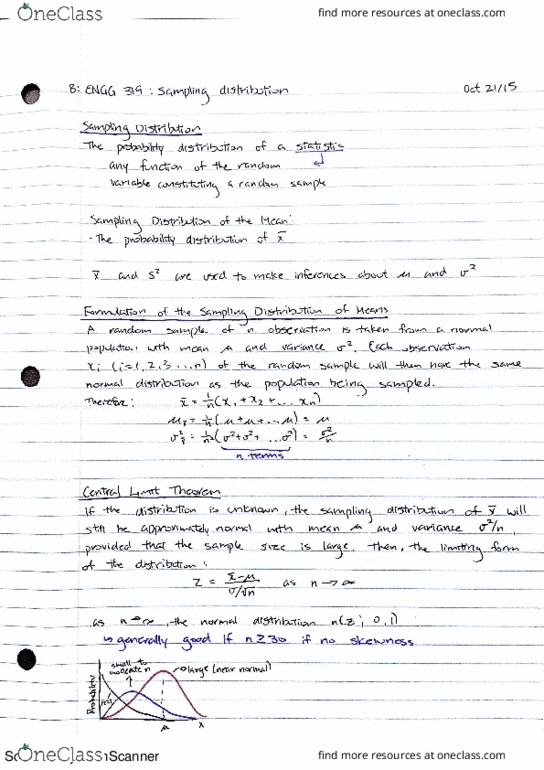 OneClass find more resources at oneclass.com
8: ENGG 319: Sampling distribution Oct 21/15
Sampling Distribution
The probability distribution of a statistic
any function of the random
variable constituting a random sample
Sampling Distribution of the Mean:
· The probability distribution of x̄
x̄ and S² are used to make inferences about μ and σ²
Formulation of the Sampling Distribution of Means
A random sample of n observation is taken from a normal
population, with mean μ and variance σ². Each observation
xi (i=1,2,3...n) of the random sample will then have the same
normal distribution as the population being sampled.
Therefore: x̄ = 1/n (x₁ + x₂ + ... xn)
μx̄ = 1/n (μ + μ + ... μ) = μ
σ²x̄ = 1/n² (σ² + σ² + ... σ²) = σ²/n
n terms
Central Limit Theorem
If the distribution is unknown, the sampling distribution of x̄ will
still be approximately normal with mean μ and variance σ²/n,
provided that the sample size is large. Then, the limiting form
of the distribution:
Z = x̄-μ / σ/√n as n → ∞
as n → ∞, the normal distribution n(z; 0,1)
↳ generally good if n ≥ 30 if no skewness
small to
moderate n
large (near normal)
Probability
μ x
OneClass Scanner find more resources at oneclass.com